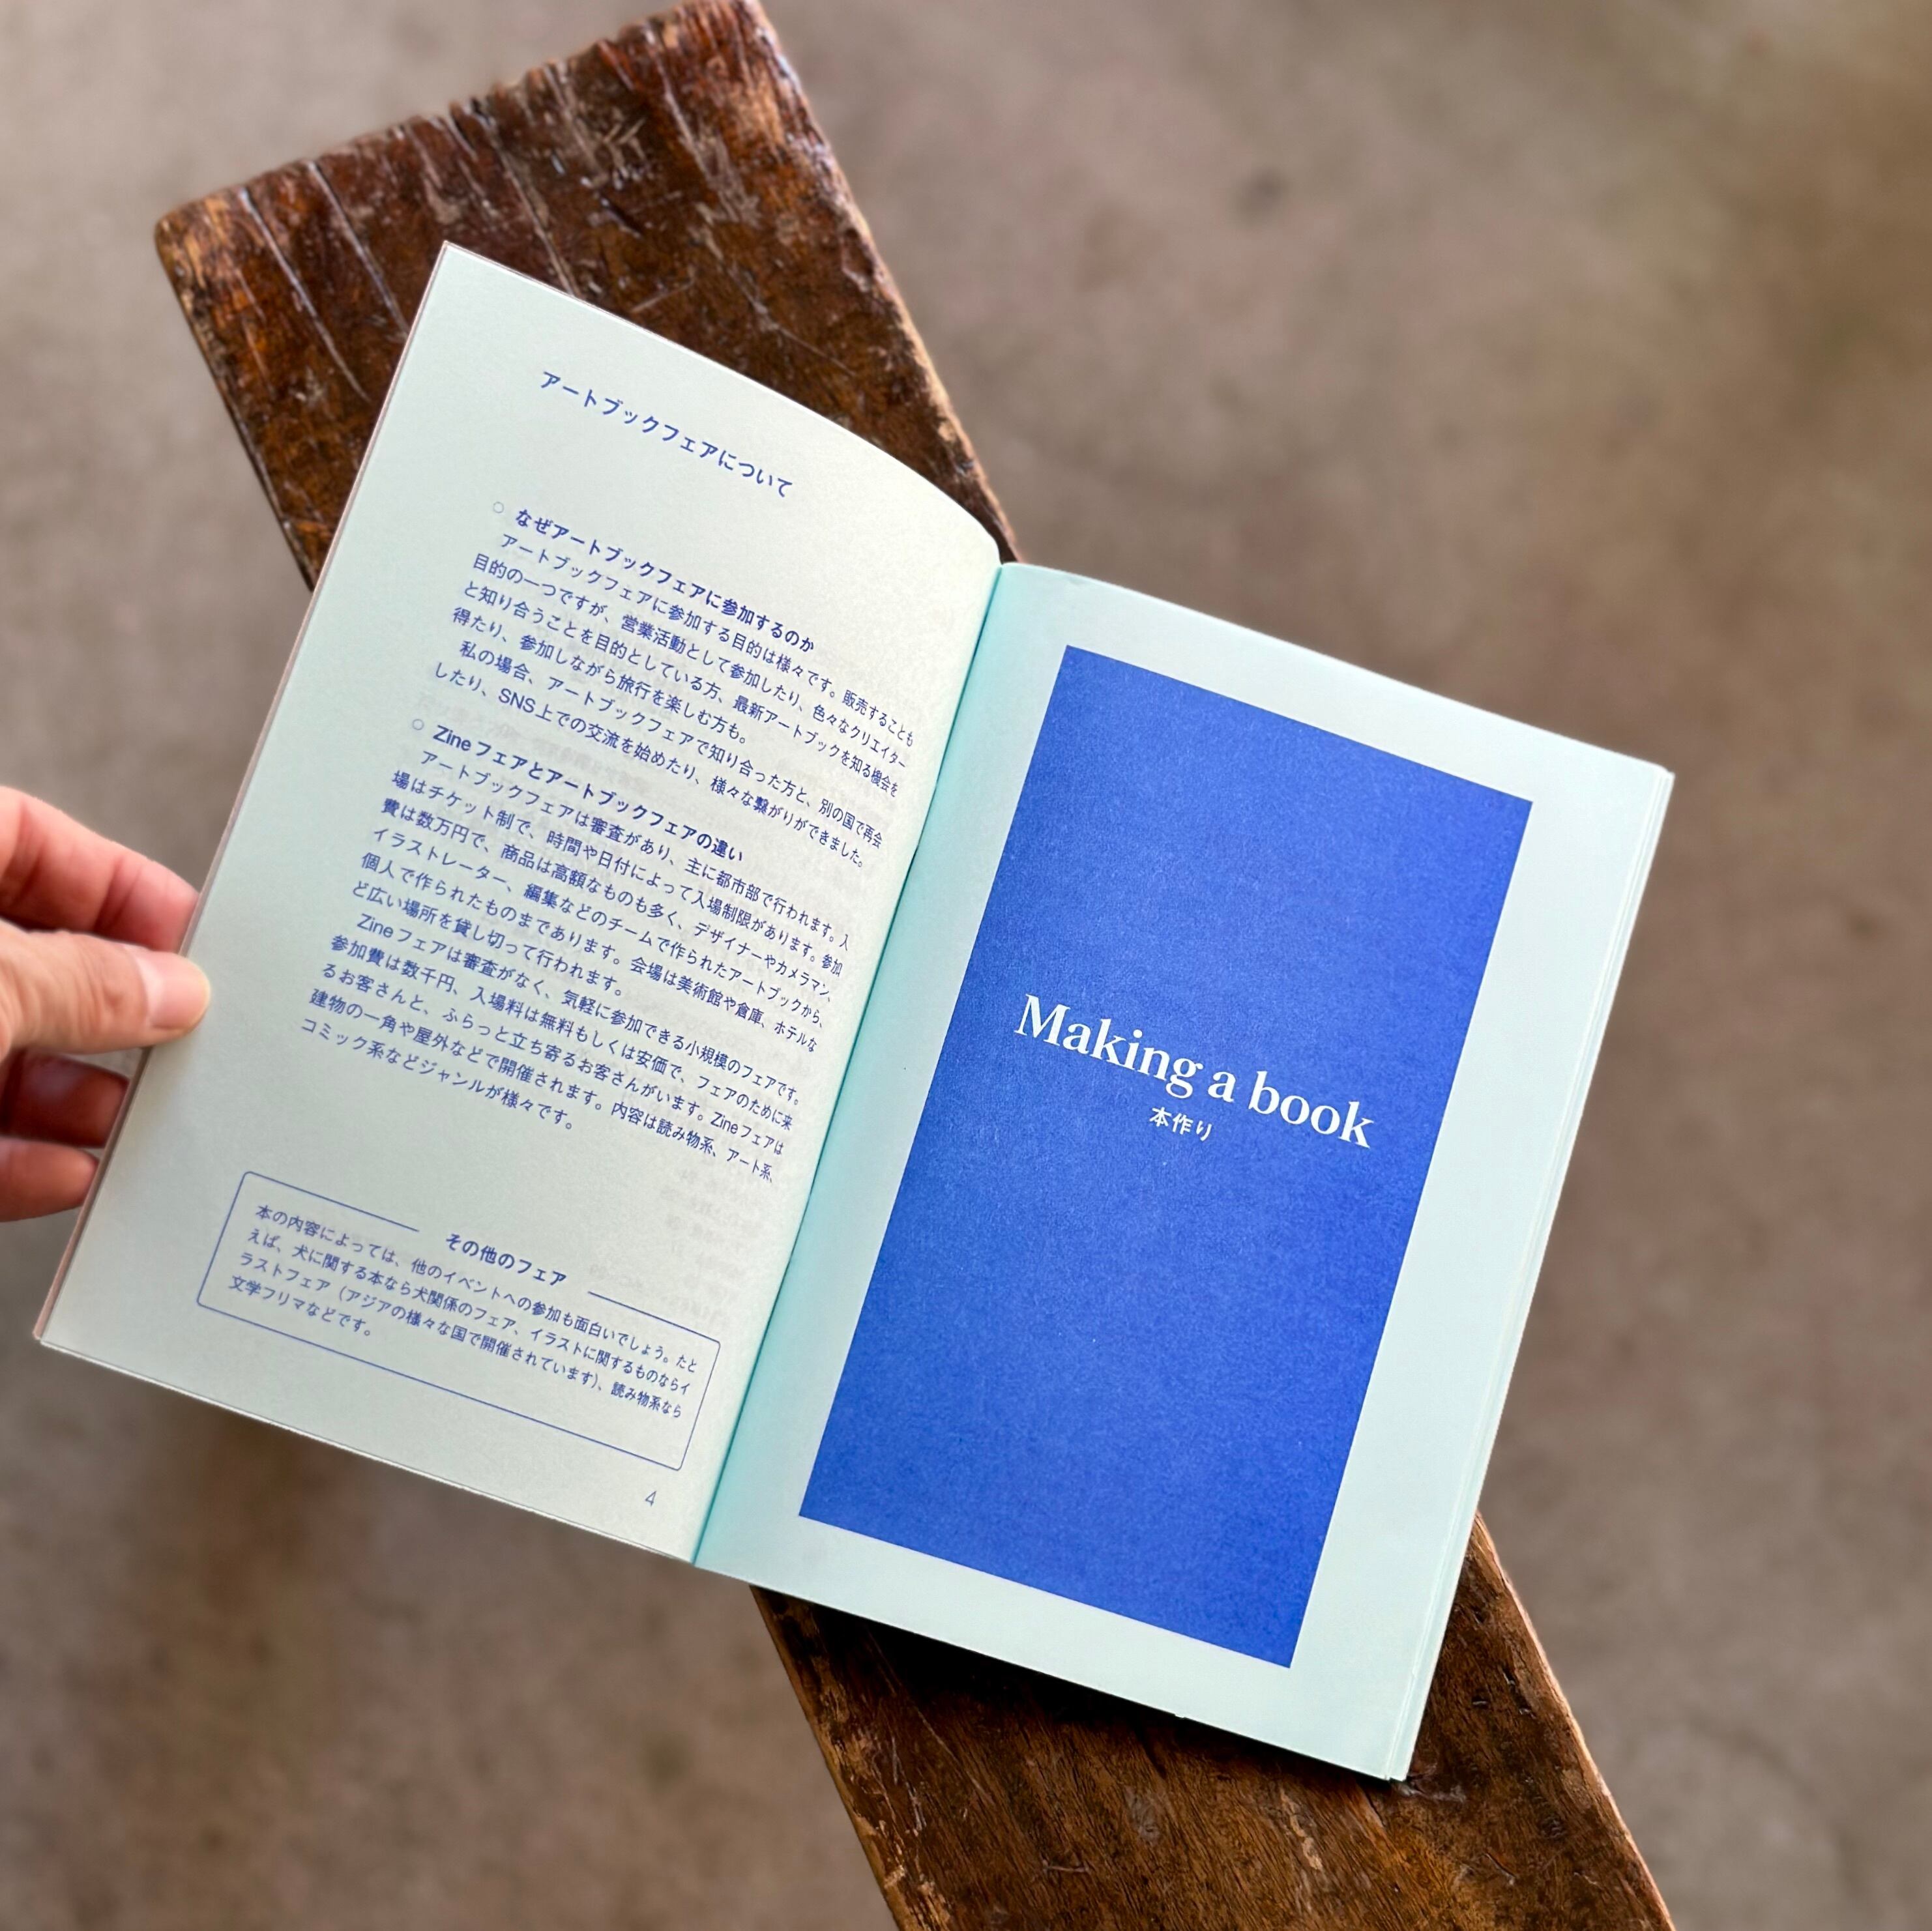 アートブックフェアについて
○ なぜアートブックフェアに参加するのか
アートブックフェアに参加する目的は様々です。販売することも
目的の一つですが、営業活動として参加したり、色々なクリエイター
と知り合うことを目的としている方、最新アートブックを知る機会を
得たり、参加しながら旅行を楽しむ方も。
私の場合、アートブックフェアで知り合った方と、別の国で再会
したり、SNS上での交流を始めたり、様々な繋がりができました。
○ Zineフェアとアートブックフェアの違い
アートブックフェアは審査があり、主に都市部で行われます。入
場はチケット制で、時間や日付によって入場制限があります。参加
費は数万円で、商品は高額なものも多く、デザイナーやカメラマン、
イラストレーター、編集などのチームで作られたアートブックから、
個人で作られたものまであります。会場は美術館や倉庫、ホテルな
ど広い場所を貸し切って行われます。
Zineフェアは審査がなく、気軽に参加できる小規模のフェアです。
参加費は数千円、入場料は無料もしくは安価で、フェアのために来
るお客さんと、ふらっと立ち寄るお客さんがいます。Zineフェアは
建物の一角や屋外などで開催されます。内容は読み物系、アート系、
コミック系などジャンルが様々です。
その他のフェア
本の内容によっては、他のイベントへの参加も面白いでしょう。たと
えば、犬に関する本なら犬関係のフェア、イラストに関するものならイ
ラストフェア（アジアの様々な国で開催されています）、読み物系なら
文学フリマなどです。
4
Making a book
本作り